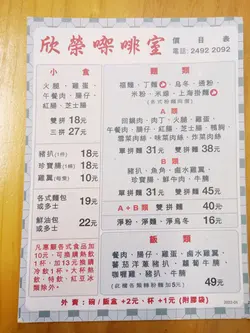 欣榮㗎啡室
價目表
電話: 2492 2092
小食
火腿、雞蛋、
午餐肉、腸仔、
紅腸、芝士腸
雙拼 18元
三拼 27元
豬扒(1件) 18元
珍寶腸(1條) 18元
雞翼(每隻) 10元
各式麵包
或多士 19元
鮮油包
或多士 22元
凡惠顧各式食品加
10元,可換購熱飲
1杯,加13元換購
冷飲1杯,大熱飲、
熱特飲、紅豆冰
類除外。
麵類
福麵、丁麵、烏冬、通粉、
米粉、米線、上海撈麵
A 類
回鍋肉、肉丁、火腿、雞蛋、
午餐肉、腸仔、紅腸、芝士腸、鴨胸
雪菜肉絲、味菜肉絲、榨菜肉絲
單拼 31元 雙拼 38元
B 類
豬扒、魚角、鹵水雞翼、
珍寶腸、鮮牛肉、牛腩
單拼 38元 雙拼 45元
A+B 類 雙拼 40元
淨粉、淨麵、淨烏冬 16元
飯類
午餐肉、腸仔、雞蛋、鹵水雞翼、
蕃茄洋蔥豬扒、蘿蔔牛腩、
咖喱雞/豬扒/牛腩
49元
外賣:碗/飯盒 +2元、杯 +1元 (附膠袋)